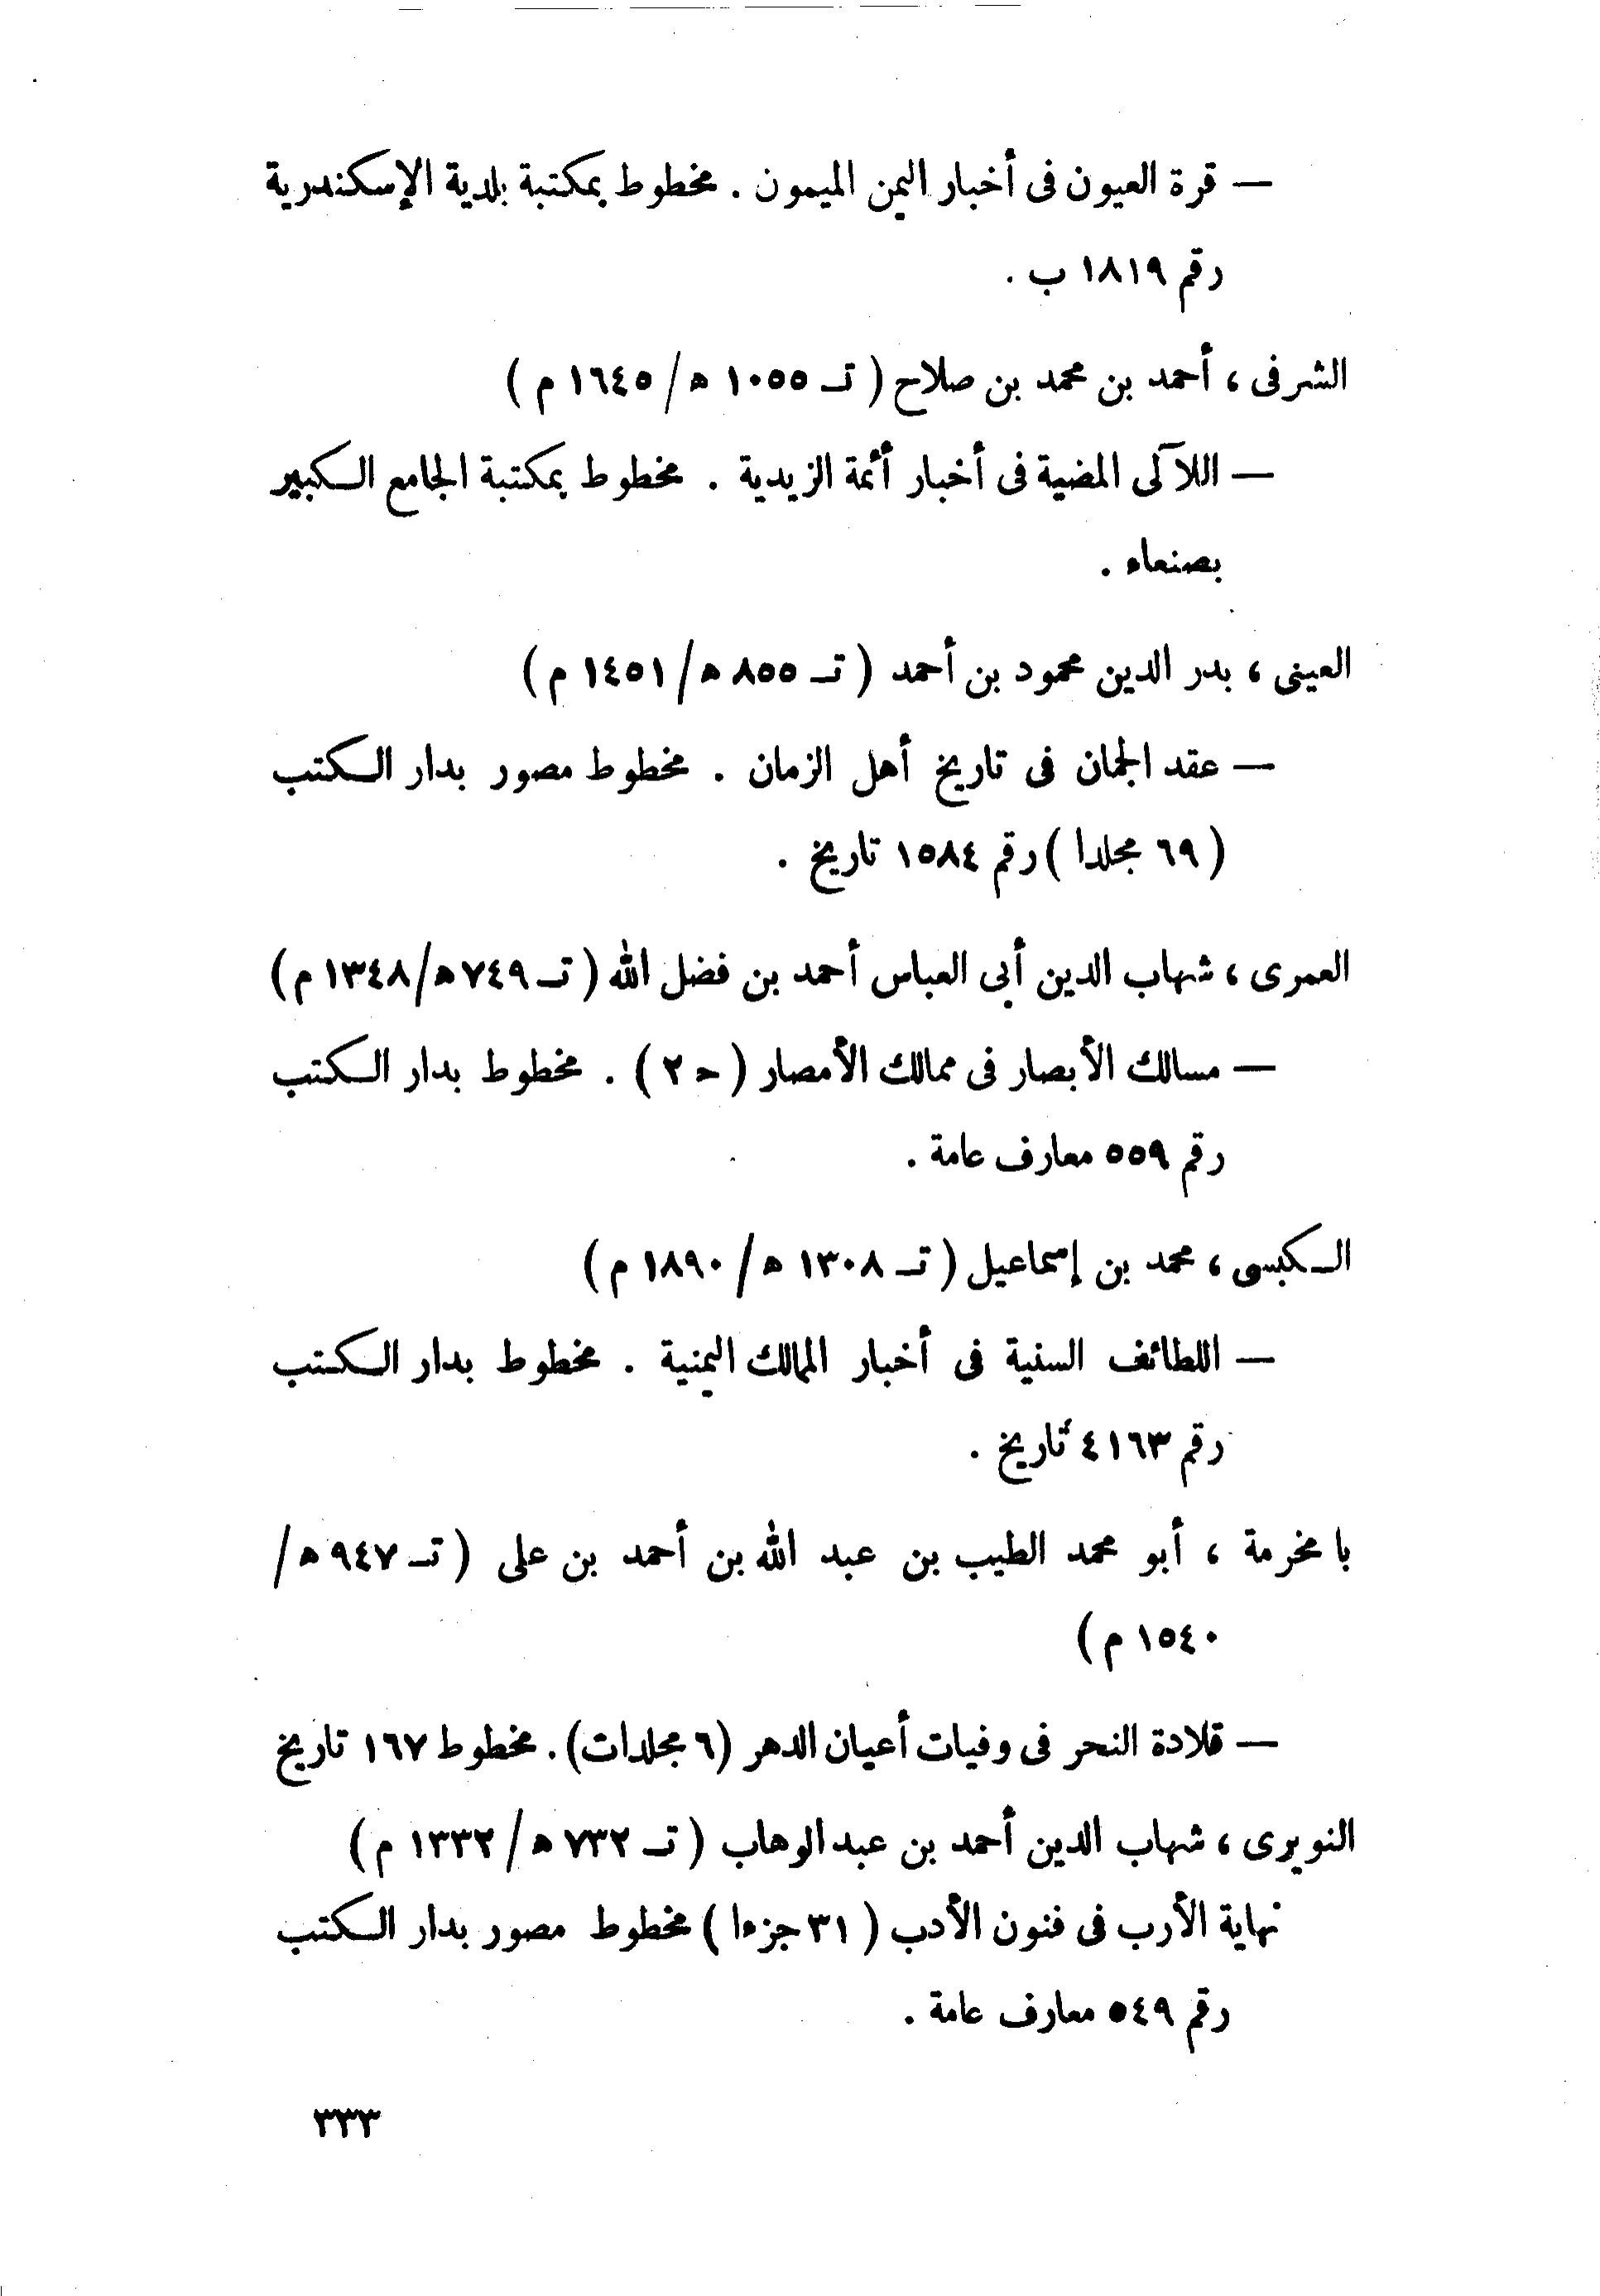 — قرة العيون فى أخبار اليمن الميمون . مخطوط بمكتبة بلدية الإسكندرية
رقم ١٨١٩ ب .
الشرفى ، أحمد بن محمد بن صلاح ( تـ ١٠٥٥ هـ / ١٦٤٥ م )
— اللآلى المضية فى أخبار أئمة الزيدية . مخطوط بمكتبة الجامع الكبير
بصنعاء .
العينى ، بدر الدين محمود بن أحمد ( تـ ٨٥٥ هـ / ١٤٥١ م )
— عقد الجمان فى تاريخ أهل الزمان . مخطوط مصور بدار الكتب
( ٦٩ مجلدا ) رقم ١٥٨٤ تاريخ .
العمرى ، شهاب الدين أبى العباس أحمد بن فضل الله ( تـ ٧٤٩ هـ / ١٣٤٨ م )
— مسالك الأبصار فى ممالك الأمصار ( حـ ٢ ) . مخطوط بدار الكتب
رقم ٥٥٩ معارف عامة .
الكبسى ، محمد بن إسماعيل ( تـ ١٣٠٨ هـ / ١٨٩٠ م )
— اللطائف السنية فى أخبار الممالك اليمنية . مخطوط بدار الكتب
رقم ٤١٦٣ تاريخ .
با مخرمة ، أبو محمد الطيب بن عبد الله بن أحمد بن على ( تـ ٩٤٧ هـ /
١٥٤٠ م )
— قلادة النحر فى وفيات أعيان الدهر ( ٦ مجلدات ) . مخطوط ١٦٧ تاريخ
النويرى ، شهاب الدين أحمد بن عبد الوهاب ( تـ ٧٣٢ هـ / ١٣٣٢ م )
نهاية الأرب فى فنون الأدب ( ٣١ جزءا ) مخطوط مصور بدار الكتب
رقم ٥٤٩ معارف عامة .
٣٣٣